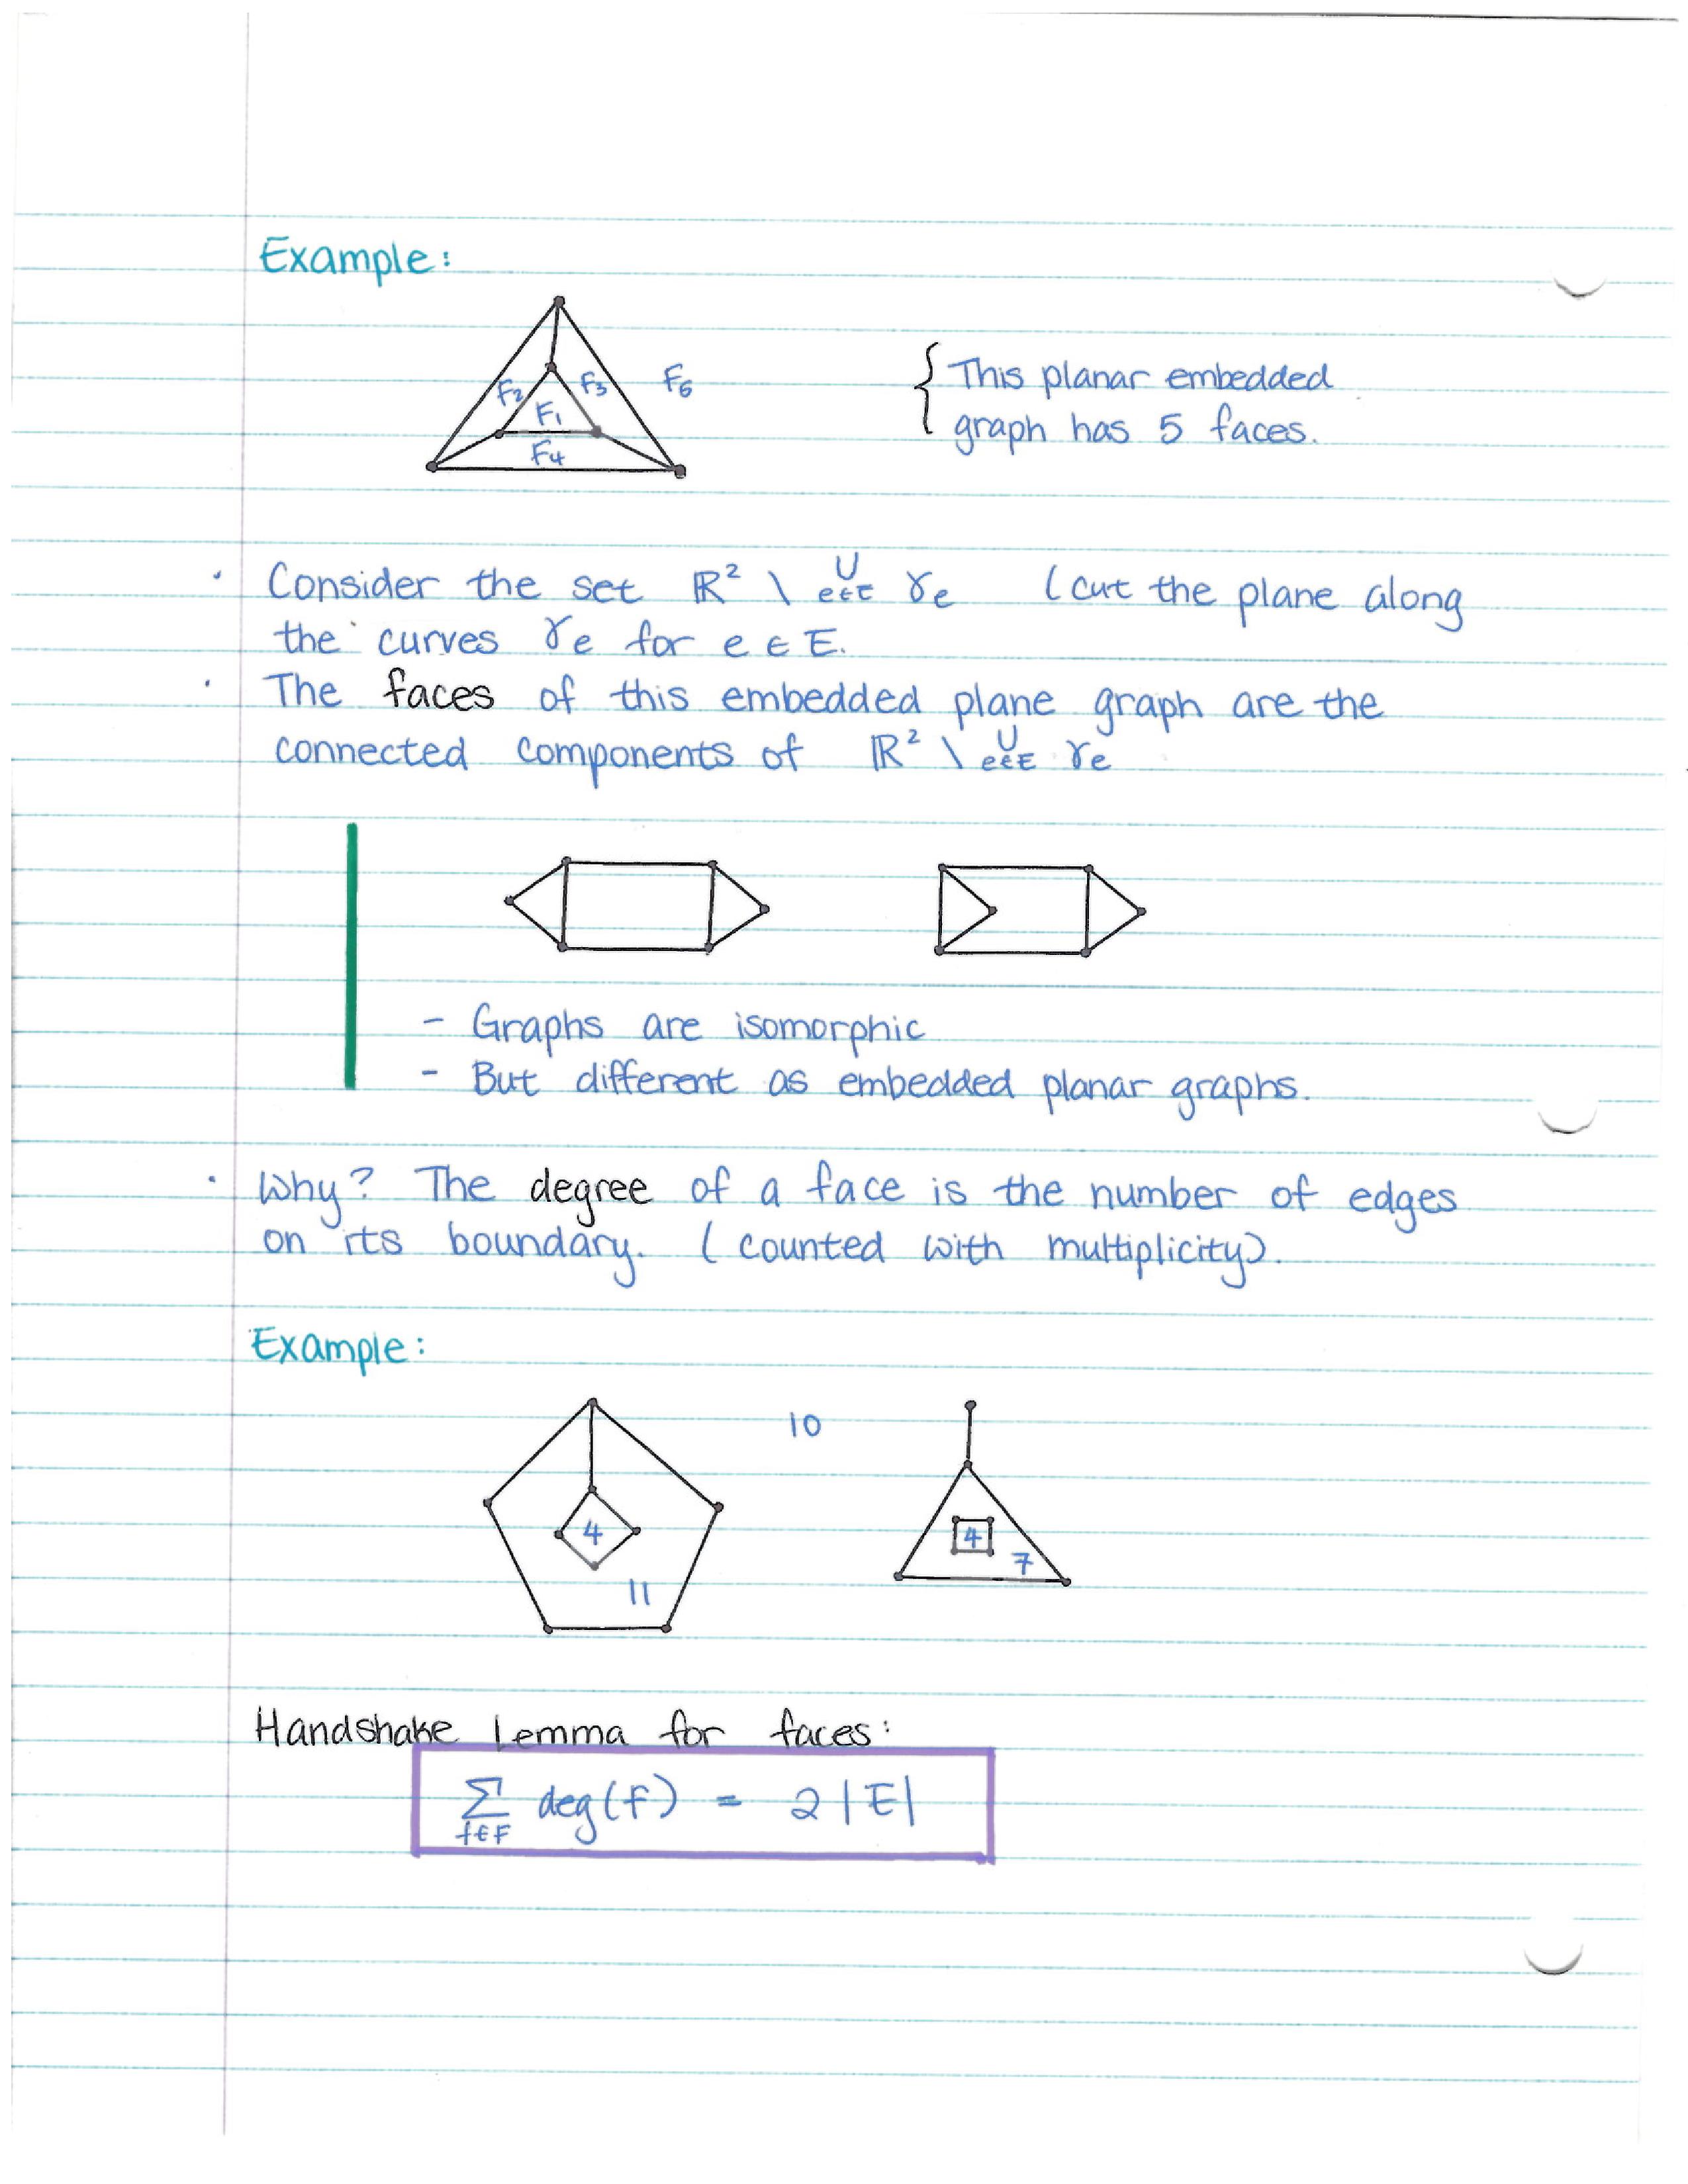 Example:
F₂ F₃ F₆
F₁
F₄
{ This planar embedded
graph has 5 faces.
· Consider the set ℝ² \ ∪ₑ∈E γₑ (cut the plane along
the curves γₑ for e ∈ E.
· The faces of this embedded plane graph are the
connected components of ℝ² \ ∪ₑ∈E γₑ
- Graphs are isomorphic
- But different as embedded planar graphs.
· Why? The degree of a face is the number of edges
on its boundary. (counted with multiplicity).
Example:
10
4 4
7
11
Handshake Lemma for faces:
∑ deg(f) = 2|E|
f∈F